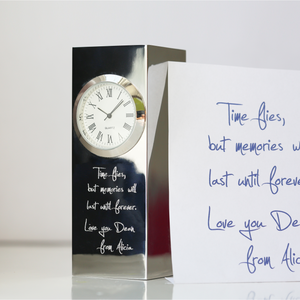 QUARTZ
Time flies,
but memories will
last until forever.
Love you Dean
from Alicia
Time flies,
but memories wi
last until foreve
Love you Dea
from Alic